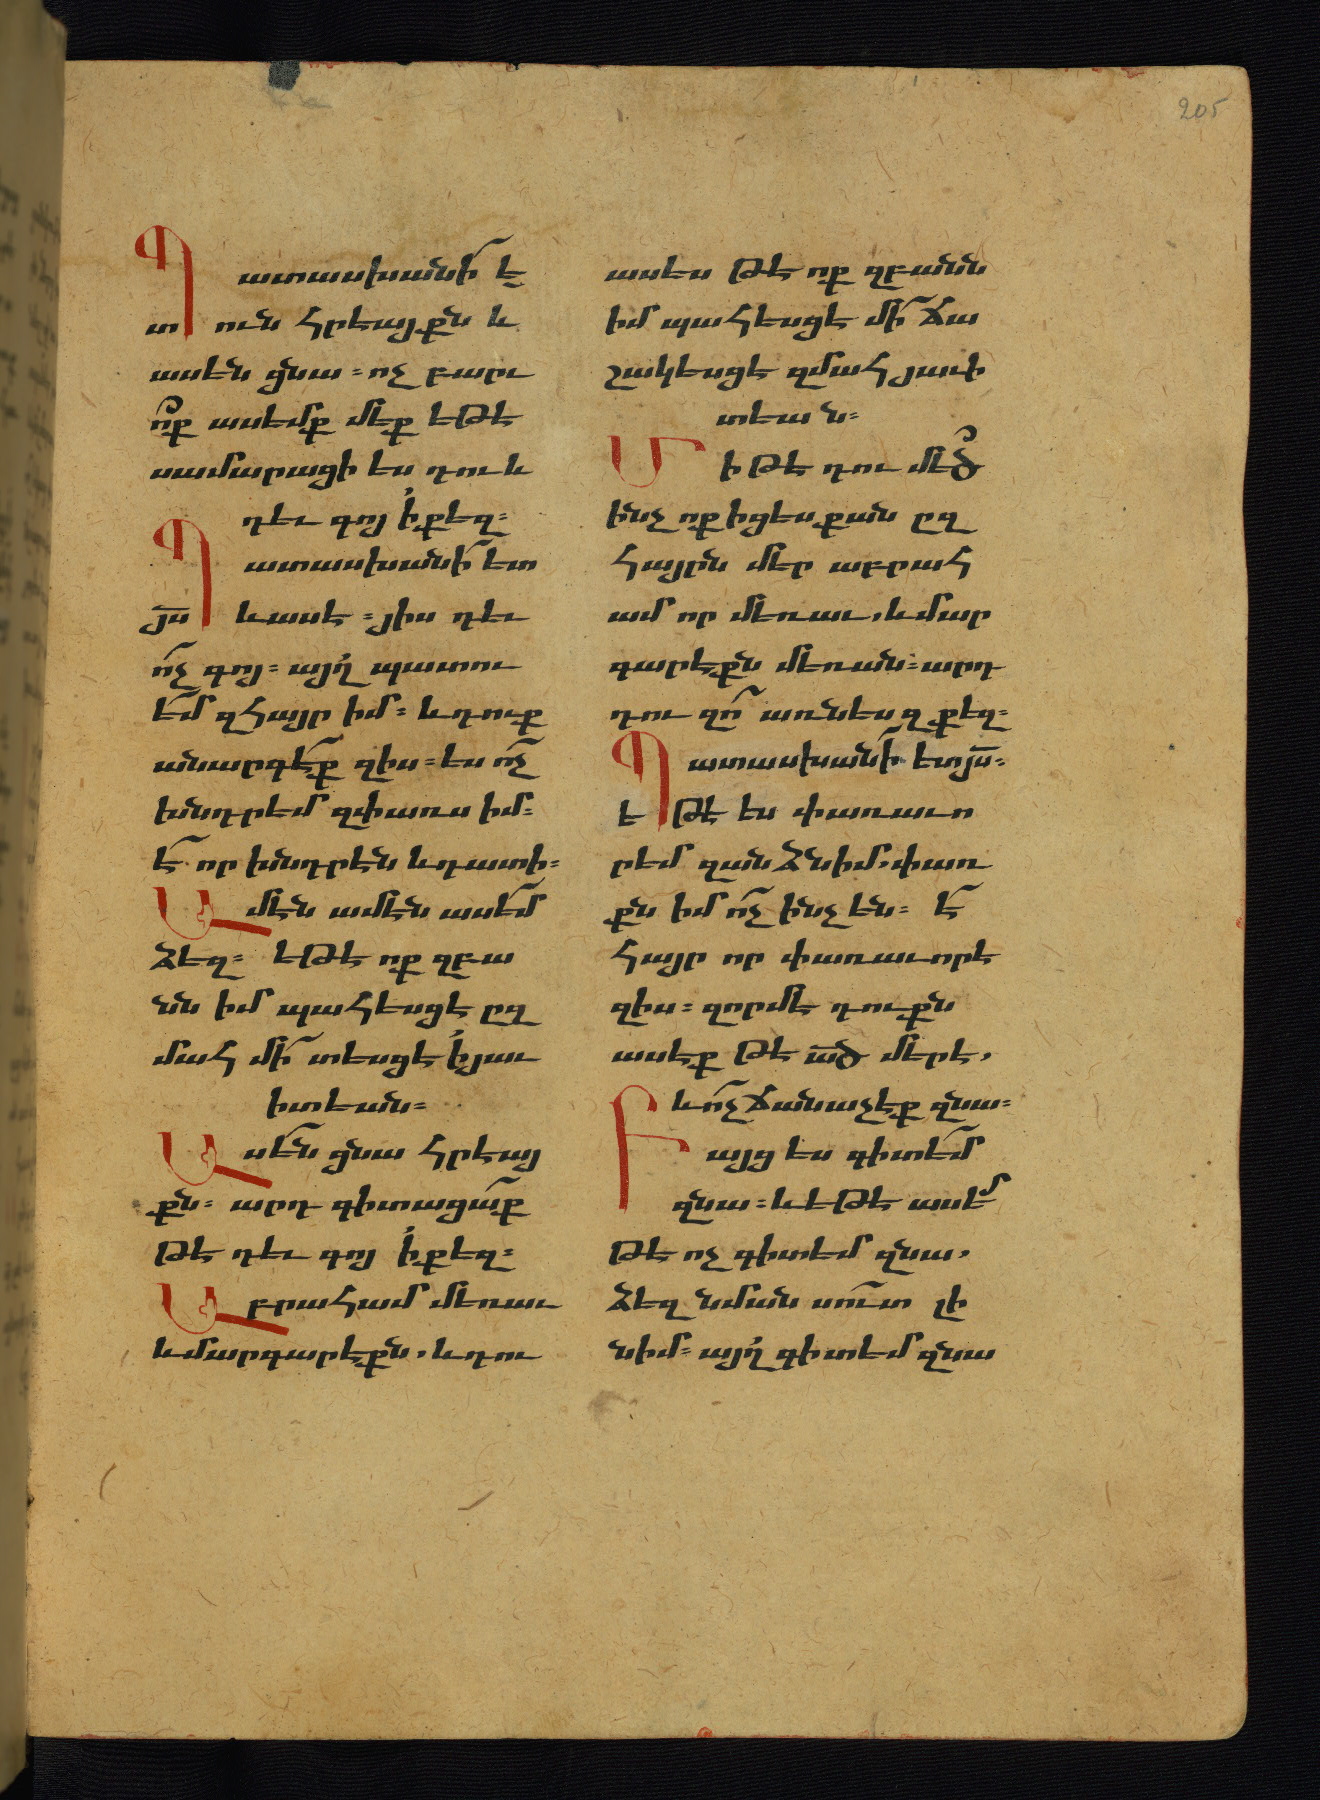 205
Պատասխանի ե
տուն հրեայքն և
ասեն ցնա։ ոչ բարւ
ոք ասեմք մեք եթե
սամարացի ես դու և
դեւ գոյ ի քեզ։
Պատասխանի ետ
յս և ասէ։ յիս դեւ
ոչ գոյ։ այղ պատու
եմ զհայր իմ։ և դուք
անարգէք զիս։ ես ոչ
խնդրեմ զփառս իմ։
է որ խնդրէն և դատի։
Ամէն ամէն ասեմ
ձեզ։ եթե ոք զբա
նն իմ պահեսցէ ըզ
մահ մի տեսցէ ի յաւ
իտեան։
Ասեն ցնա հրեայ
քն։ արդ գիտացաք
թե դեւ գոյ ի քեզ։
Աբրահամ մեռաւ
և մարգարեքն, և դու
ասես թե ոք զբանն
իմ պահեսցէ մի ճա
շակեսցէ զմահ յաւի
տեան։
Միթե դու մեծ
ինչ ոք իցես քան ըզ
հայրն մեր աբրահ
ամ որ մեռաւ, և մար
գարեքն մեռան։ արդ
դու զո առնես զքեզ։
Պատասխանի ետ յս։
եթե ես փառաւո
րեմ զանձն իմ, փառ
քն իմ ոչ ինչ են։ է
հայր որ փառաւորէ
զիս։ զորմէ դուքն
ասեք թե ած մեր է,
և ոչ ճանաչեք զնա։
Բայց ես գիտեմ
զնա։ և եթե ասեմ
թե ոչ գիտեմ զնա,
ձեզ նման սուտ լի
նիմ։ այղ գիտեմ զնա